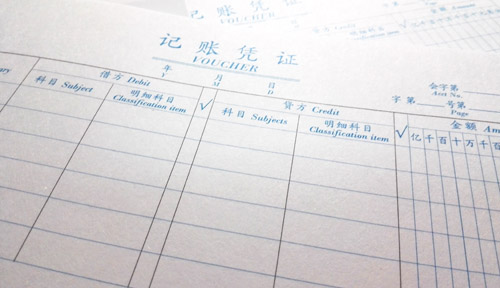 记账凭证
VOUCHER
年 月 日
Y M D
会字第 号
Ant No.
字 第 号第
Page
借方 Debit
贷方 Credit
金额
科目 Subject
明细科目
Classification item
√
科目 Subjects
明细科目
Classification item
√
亿 千 百 十 万 千 百